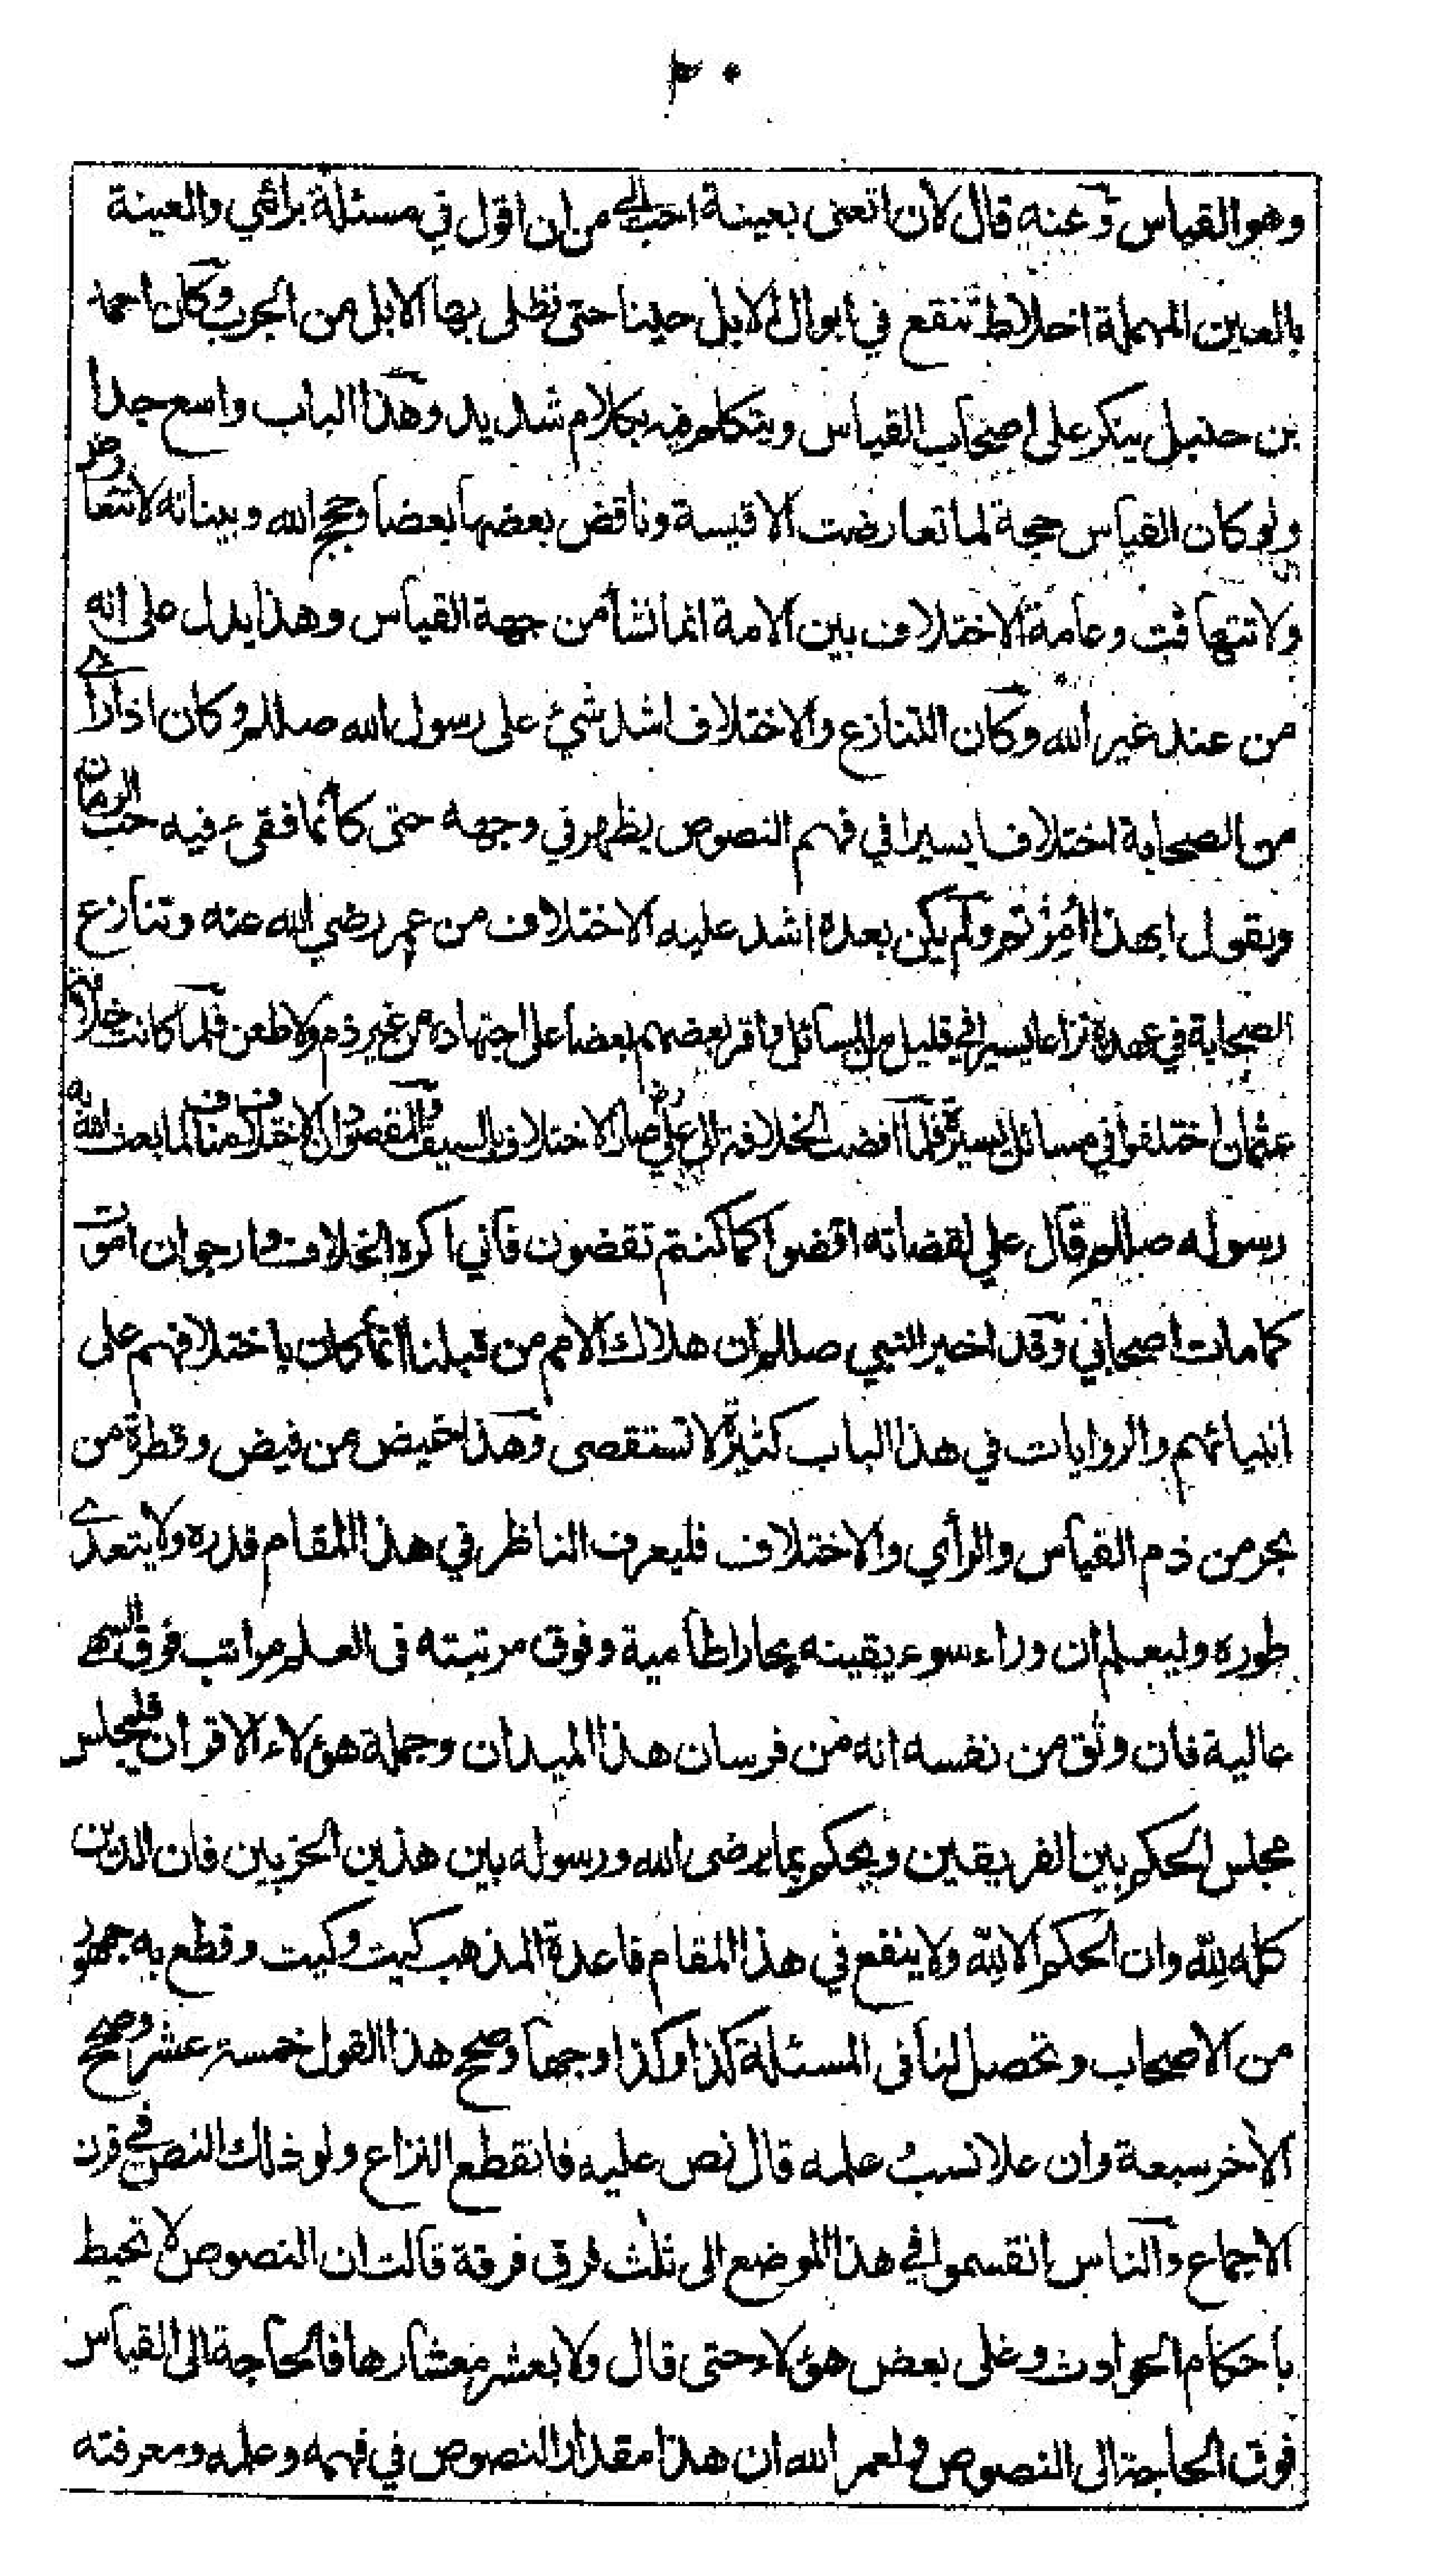 ٣٠
وهو القياس وعنه قال لان اتعنى بعينة احب الي من ان اقول في مسئلة برائي والعينة
بالعين المهملة اخلاط تنقع في ابوال الابل حينا حتى تطلى بها الابل من الجرب وكان احمد
بن حنبل ينكر على اصحاب القياس ويتكلم فيه بكلام شديد وهذا الباب واسع جدا
ولو كان القياس حجة لما تعارضت الاقيسة وناقض بعضها بعضا وحجج الله وبيناته لا تتعارض
ولا تتهافت وعامة الاختلاف بين الامة انما نشأ من جهة القياس وهذا يدل على انه
من عند غير الله وكان التنازع والاختلاف اشد شيء على رسول الله صللم وكان اذا رأى
من الصحابة اختلافا يسيرا في فهم النصوص يظهر في وجهه حتى كأنما فقىء فيه حب الرمان
ويقول ابهذا اُمِرْتم ولم يكن بعده اشد عليه الاختلاف من عمر رضي الله عنه وتنازع
الصحابة في عهده نزاعا يسيرا في قليل من المسائل واقر بعضهم بعضا على اجتهاده من غير ذم ولا طعن فلما كانت خلافة
عثمان اختلفوا في مسائل يسيرة فلما افضت الخلافة الى علي رض صار الاختلاف بالسيف والمقصود ان الاختلاف مناف لما بعث الله به
رسوله صللم قال علي لقضاته اقضوا كما كنتم تقضون فاني اكره الخلاف وارجو ان اموت
كما مات اصحابي وقد اخبر النبي صللم ان هلاك الامم من قبلنا انما كان باختلافهم على
انبيائهم والروايات في هذا الباب كثيرة لا تستقصى وهذا غيض من فيض وقطرة من
بحر من ذم القياس والرأي والاختلاف فليعرف الناظر في هذا المقام قدره ولا يتعدى
طوره وليعلم ان وراء سوء يقينه بحارا طامية وفوق مرتبته في العلم مراتب فوق السهى
عالية فان وثق من نفسه انه من فرسان هذا الميدان وجملة هؤلاء الاقران فليجلس
مجلس الحكم بين الفريقين ويحكم بما يرضى الله ورسوله بين هذين الحزبين فان الدين
كله لله وان الحكم الا لله ولا ينفع في هذا المقام قاعدة المذهب كيت وكيت وقطع به جمهور
من الاصحاب وتحصل لنا في المسئلة كذا وكذا وجها وصحح هذا القول خمسة عشر وصحح
الآخر سبعة وان علا نسب علمه قال نص عليه فانقطع النزاع ولز ذلك النص في قرن
الاجماع والناس انقسموا في هذا الموضع الى ثلث فرق فرقة قالت ان النصوص لا تحيط
باحكام الحوادث وغلى بعض هؤلاء حتى قال ولا بعشر معشارها فالحاجة الى القياس
فوق الحاجة الى النصوص ولعمر الله ان هذا مقدار النصوص في فهمه وعلمه ومعرفته